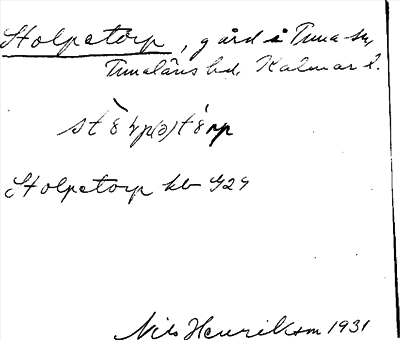 Stolpetorp, gård i Tuna sn,
Tunaläns hd, Kalmar l.
Stolpetorp kb 1929
Nils Henrikson 1931